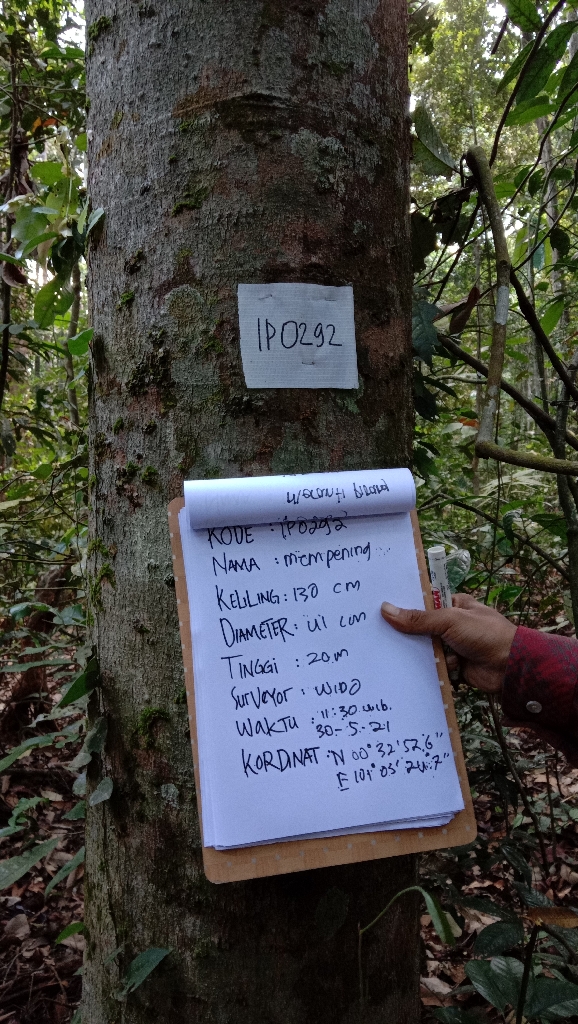 IPO292
KODE : IPO292
NAMA : mempening
KELILING : 130 cm
DIAMETER : 41 cm
TINGGI : 20 m
Surveyor : WIDO
WAKTU : 11:30 wib.
30-5-21
KORDINAT : N 00° 32' 52.6"
E 101° 03' 24.7"